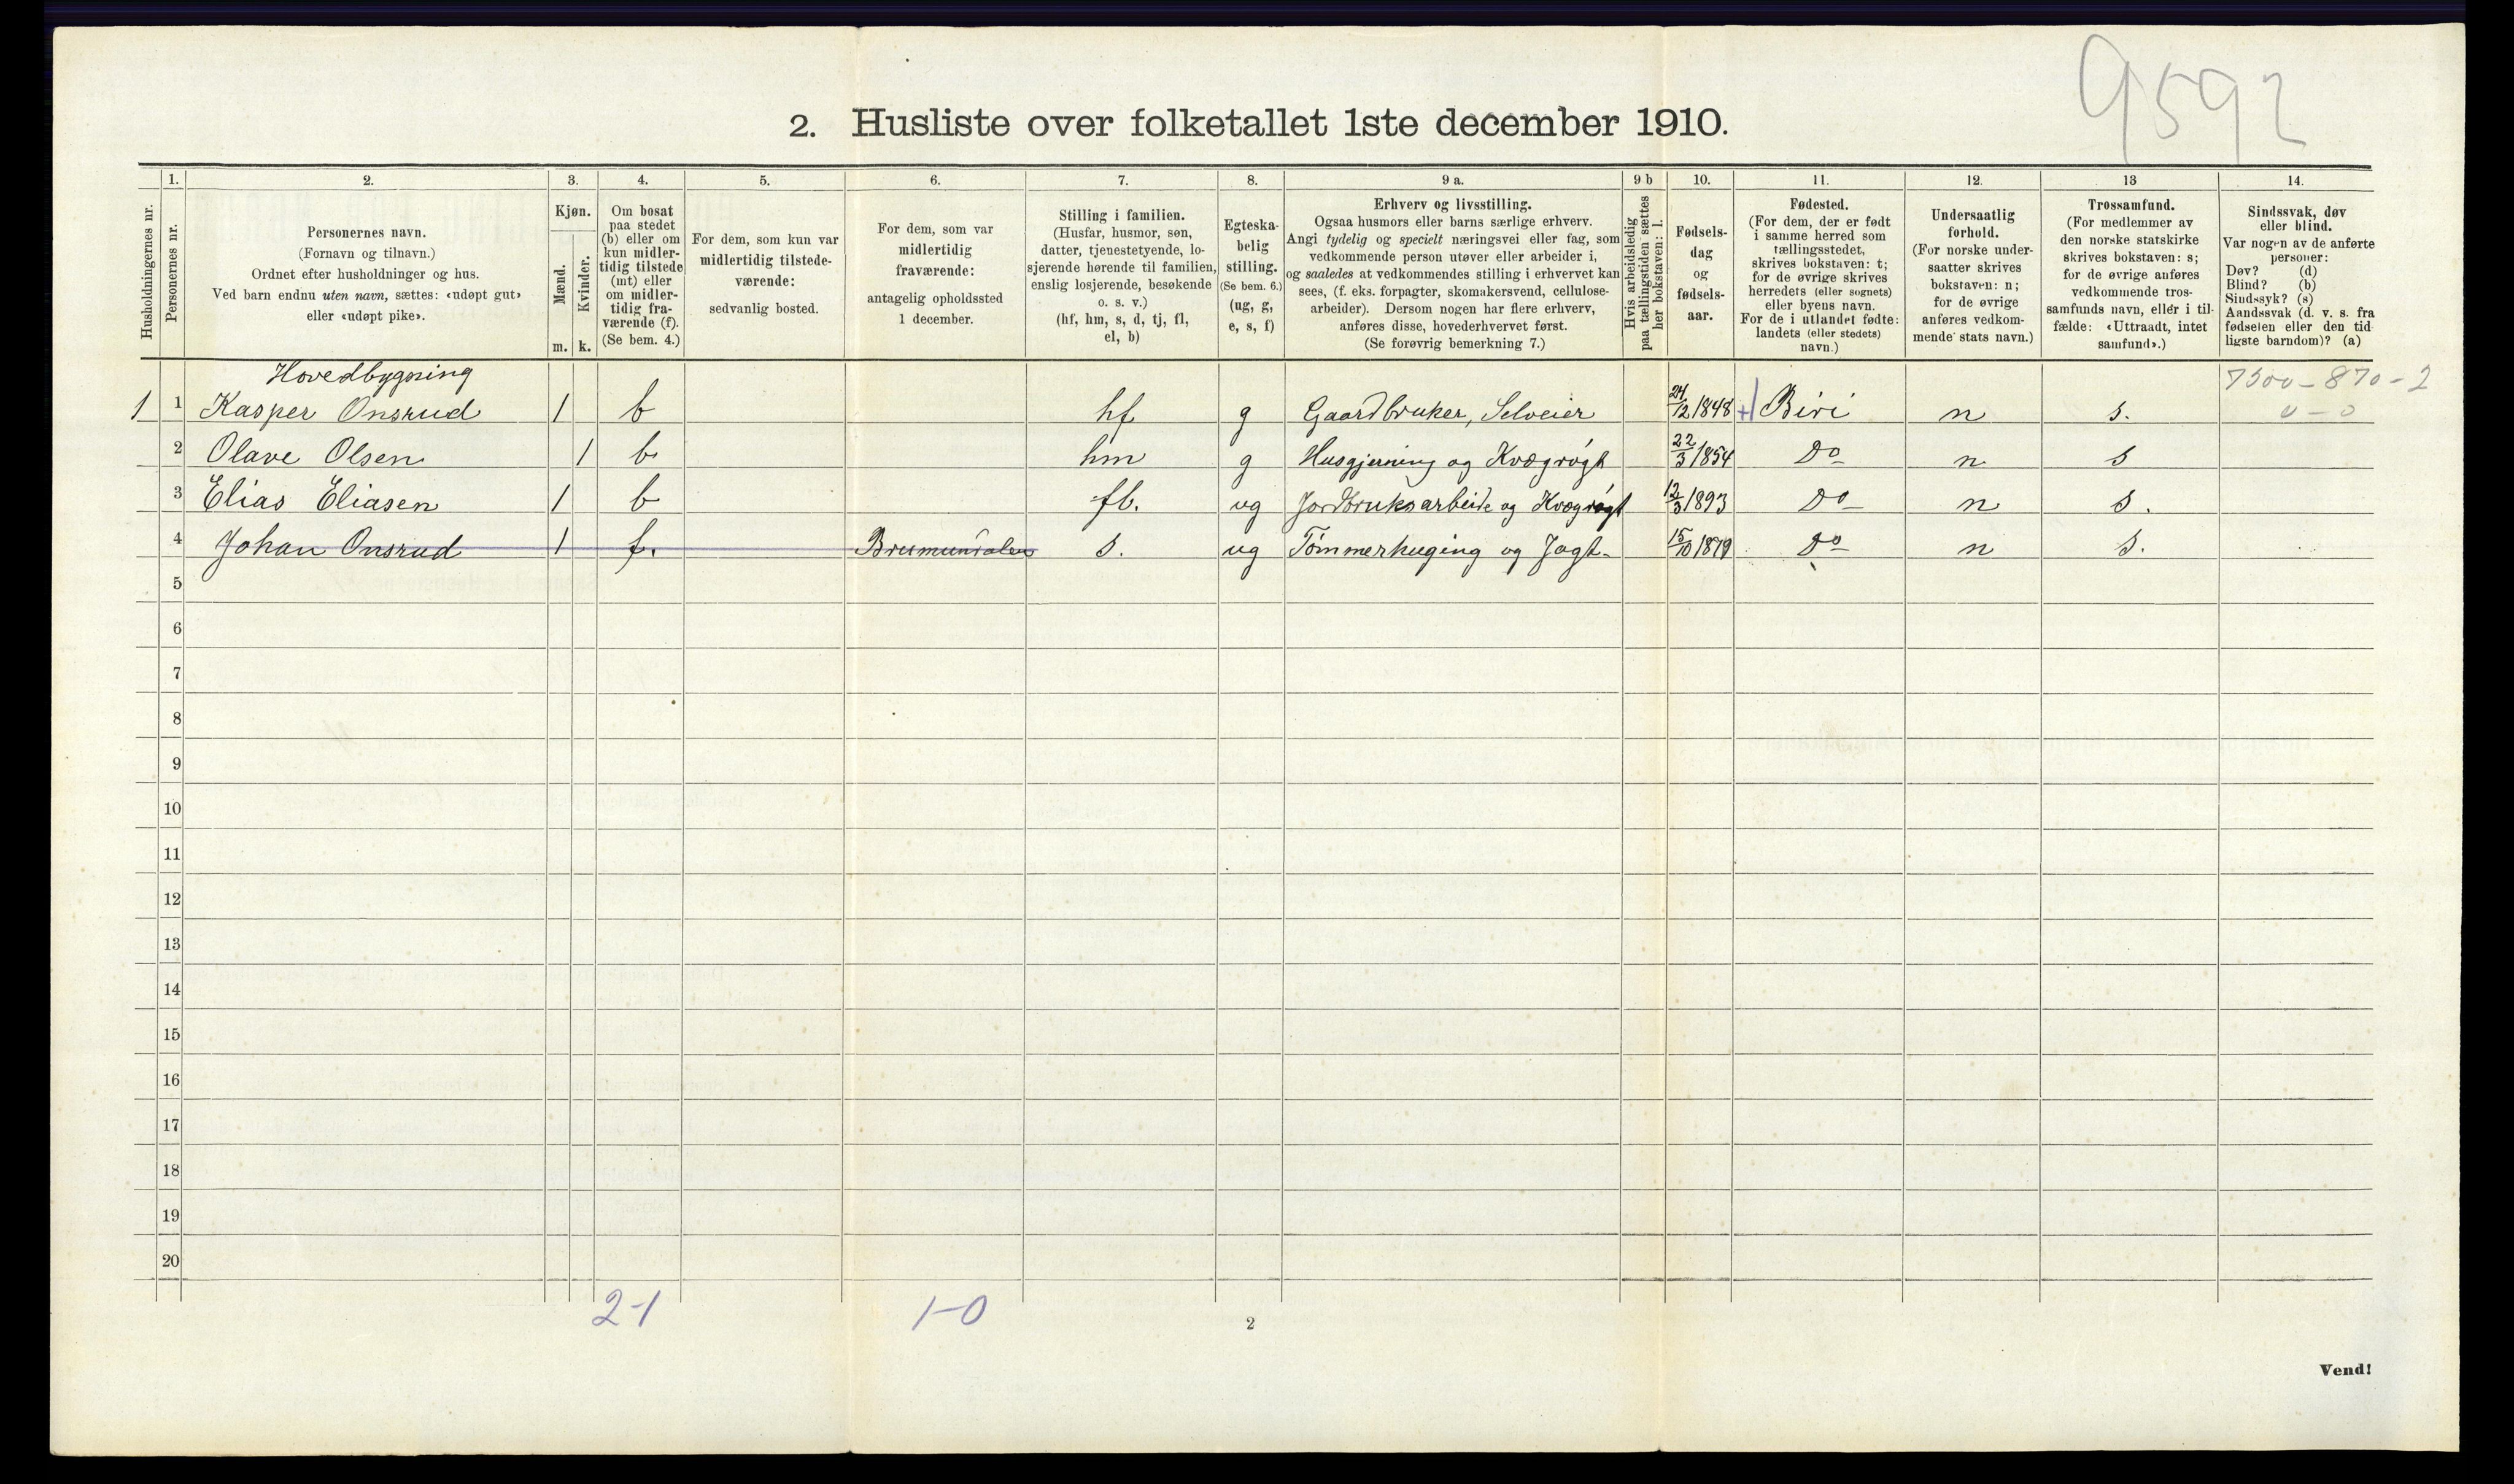 9592
2. Husliste over folketallet 1ste december 1910.
1. 2. 3. 4. 5. 6. 7. 8. 9 a. 9 b 10. 11. 12. 13 14.
Husholdningernes nr.
Personernes nr.
Personernes navn.
(Fornavn og tilnavn.)
Ordnet efter husholdninger og hus.
Ved barn endnu uten navn, sættes: «udøpt gut»
eller «udøpt pike».
Kjøn.
Mænd.
Kvinder.
m. k.
Om bosat
paa stedet
(b) eller om
kun midler-
tidig tilstede
(mt) eller
om midler-
tidig fra-
værende (f).
(Se bem. 4.)
For dem, som kun var
midlertidig tilstede-
værende:
sedvanlig bosted.
For dem, som var
midlertidig
fraværende:
antagelig opholdssted
1 december.
Stilling i familien.
(Husfar, husmor, søn,
datter, tjenestetyende, lo-
sjerende hørende til familien,
enslig losjerende, besøkende
o. s. v.)
(hf, hm, s, d, tj, fl,
el, b)
Egteska-
belig
stilling.
(Se bem. 6.)
(ug, g,
e, s, f)
Erhverv og livsstilling.
Ogsaa husmors eller barns særlige erhverv.
Angi tydelig og specielt næringsvei eller fag, som
vedkommende person utøver eller arbeider i,
og saaledes at vedkommendes stilling i erhvervet kan
sees, (f. eks. forpagter, skomakersvend, cellulose-
arbeider). Dersom nogen har flere erhverv,
anføres disse, hovederhvervet først.
(Se forøvrig bemerkning 7.)
Hvis arbeidsledig
paa tællingstiden sættes
her bokstaven: l.
Fødsels-
dag
og
fødsels-
aar.
Fødested.
(For dem, der er født
i samme herred som
tællingsstedet,
skrives bokstaven: t;
for de øvrige skrives
herredets (eller sognets)
eller byens navn.
For de i utlandet fødte:
landets (eller stedets)
navn.)
Undersaatlig
forhold.
(For norske under-
saatter skrives
bokstaven: n;
for de øvrige
anføres vedkom-
mende stats navn.)
Trossamfund.
(For medlemmer av
den norske statskirke
skrives bokstaven: s;
for de øvrige anføres
vedkommende tros-
samfunds navn, eller i til-
fælde: «Uttraadt, intet
samfund».)
Sindssvak, døv
eller blind.
Var nogen av de anførte
personer:
Døv? (d)
Blind? (b)
Sindssyk? (s)
Aandssvak (d. v. s. fra
fødselen eller den tid-
ligste barndom)? (a)
Hovedbygning
7500 - 870 - 2
1 1 Kasper Onsrud 1 b hf g Gaardbruker, Selveier 24/12 1848 + Biri n s. 0 - 0
2 Olave Olsen 1 b hm g Husgjerning og Kvægrøgt 22/3 1854 Do n s
3 Elias Eliasen 1 b fb. ug Jordbruksarbeide og Kvægrøgt 12/3 1893 Do n s.
4 Johan Onsrud 1 f. Brumundalen s. ug Tømmerhuging og Jagt. 15/10 1879 Do n s.
5
6
7
8
9
10
11
12
13
14
15
16
17
18
19
20
2-1 1-0
2
Vend!